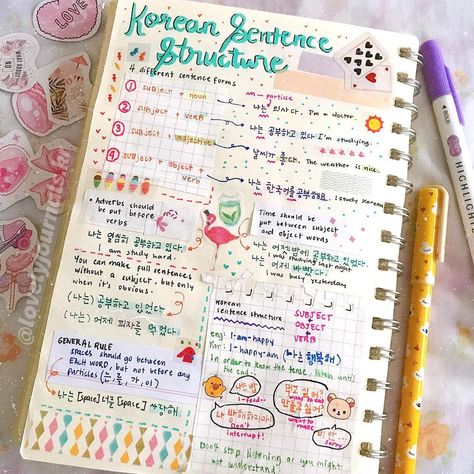 Korean Sentence
Structure
4 different sentence forms
① subject + noun
② subject + VERB
③ subject + adjective
④ subject + object +
verb
~ particle
나는 의사다. I'm a doctor.
나는 공부하고 있다 I'm studying.
날씨가 좋다. The weather is nice.
나는 한국어를 공부해요. I study Korean
• Adverbs should
be put before
verbs
나는 열심히 공부하고 있다.
I am study hard.
Time should be
put between subject
and object words
나는 어젯밤에 공부하고 있었다.
I was studying last night
나는 어제 바빴다.
I was busy yesterday
You can make full sentences
without a subject, but only
when it's obvious.
(나는) 공부하고 있었다
(나는) 어제 피자를 먹었다.
GENERAL RULE
spaces should go between
EACH WORD, but not before any
particles (는, 를, 가, 이)
나는 [space] 너를 [space] 사랑해
Korean
sentence structure
SUBJECT
+
OBJECT
+
VERB
eng: I-am-happy
Kor: I-happy-am (나는 행복해)
In order to know the tense, listen until
the end..
I-food..
Don't
interrupt!
want to eat
want to
make
미안...
sorry
Don't stop listening or you might
not understand!
LOVE
HIGHLIGHTER